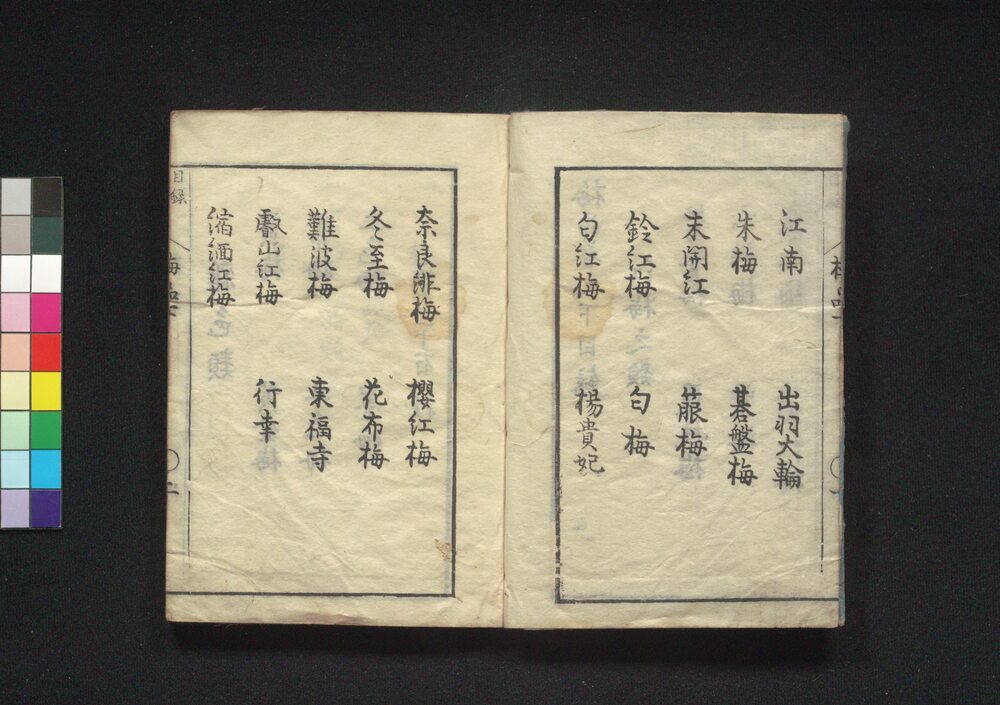 江南 出羽大輪
朱梅 碁盤梅
未開紅 蒑梅
鈴紅梅 匂梅
匂紅梅 楊貴妃
奈良緋梅 櫻紅梅
冬至梅 花布梅
難波梅 東福寺
叡山紅梅 行幸
縮緬紅梅
目録
梅品